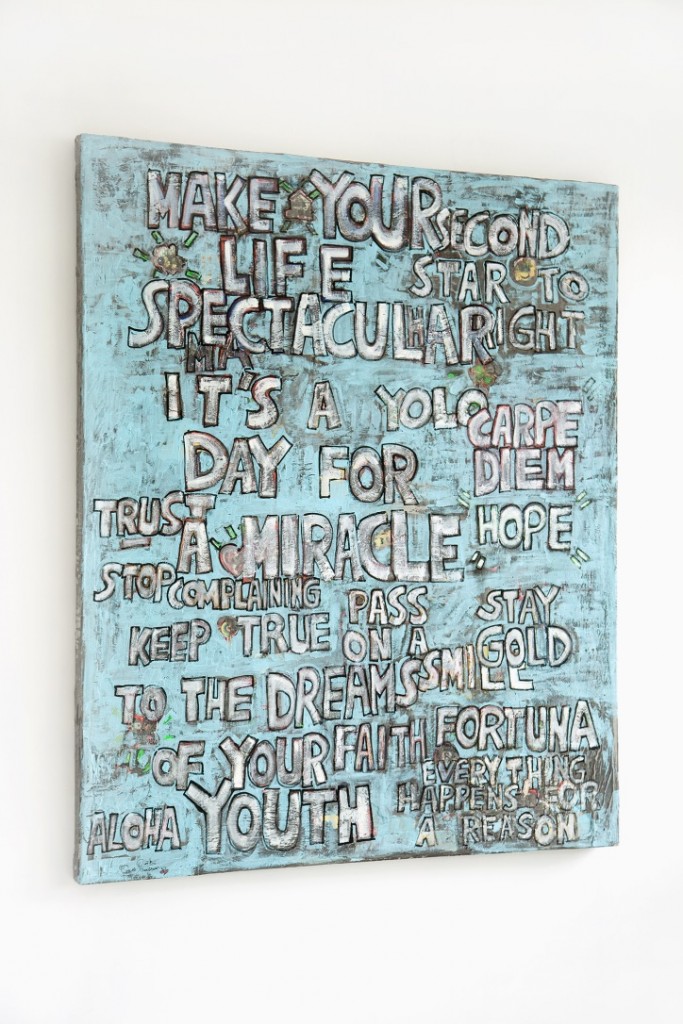 MAKE YOUR
LIFE
SPECTACULAR
SECOND
STAR TO
RIGHT
IT'S A
YOLO
CARPE
DIEM
DAY FOR
A MIRACLE
TRUST
HOPE
STOP COMPLAINING
PASS
ON A
SMILE
STAY
GOLD
KEEP TRUE
TO THE DREAMS
OF YOUR
YOUTH
FAITH
FORTUNA
EVERYTHING
HAPPENS FOR
A REASON
ALOHA